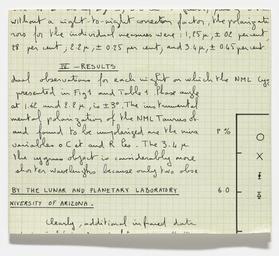 without a night-to-night correction factor, the polarizati
rors for the individual measures were: 1.25 μ, ± .02 percent
18 per cent, 2.2 μ, ± 0.25 per cent, and 3.4 μ, ± 0.45 percent
IV - RESULTS
dual observations for each night on which the NML Cyg
presented in Fig 1 and Table 1. Phase angle
at 1.62 and 2.2 μ, is ± 3°. The instrumental
mental polarization of the NML Taurus ob
and found to be unpolarized are the mira
variables o C et and R Leo. The 3.4 μ
the cygnus object is considerably more
shorter wavelengths because only two obse
BY THE LUNAR AND PLANETARY LABORATORY
NIVERSITY OF ARIZONA.
Clearly, additional infrared data
P %
6.0